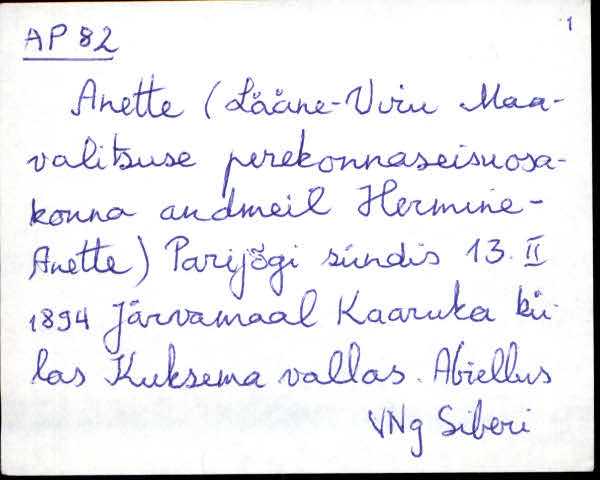 1
AP 82
Anette (Lääne-Viru Maa-
valitsuse perekonnaseisuosa-
konna andmeil Hermine-
Anette) Parijõgi sündis 13. II
1894 Järvamaal Kaaruka kü-
las Kuksema vallas. Abiellus
VNg Siberi